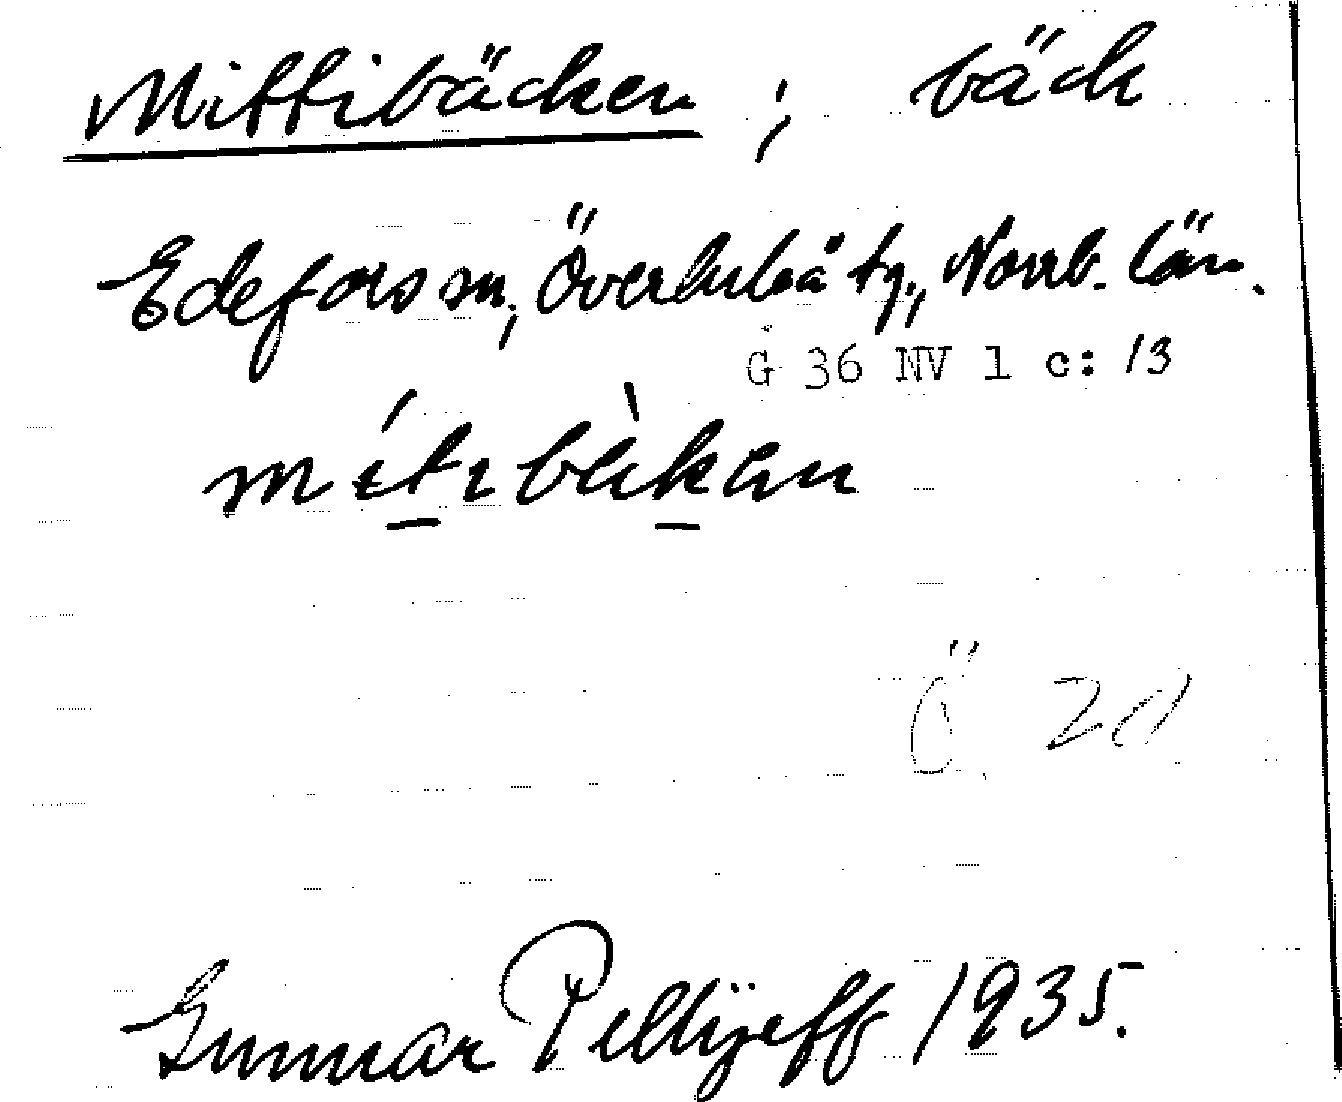 Mittibäcken ; bäck
Edefors sn, Överluleå tg., Norrb. län.
G 36 NV 1 c: 13
mítıbàkan
Ö 2d
Gunnar Pellijeff 1935.